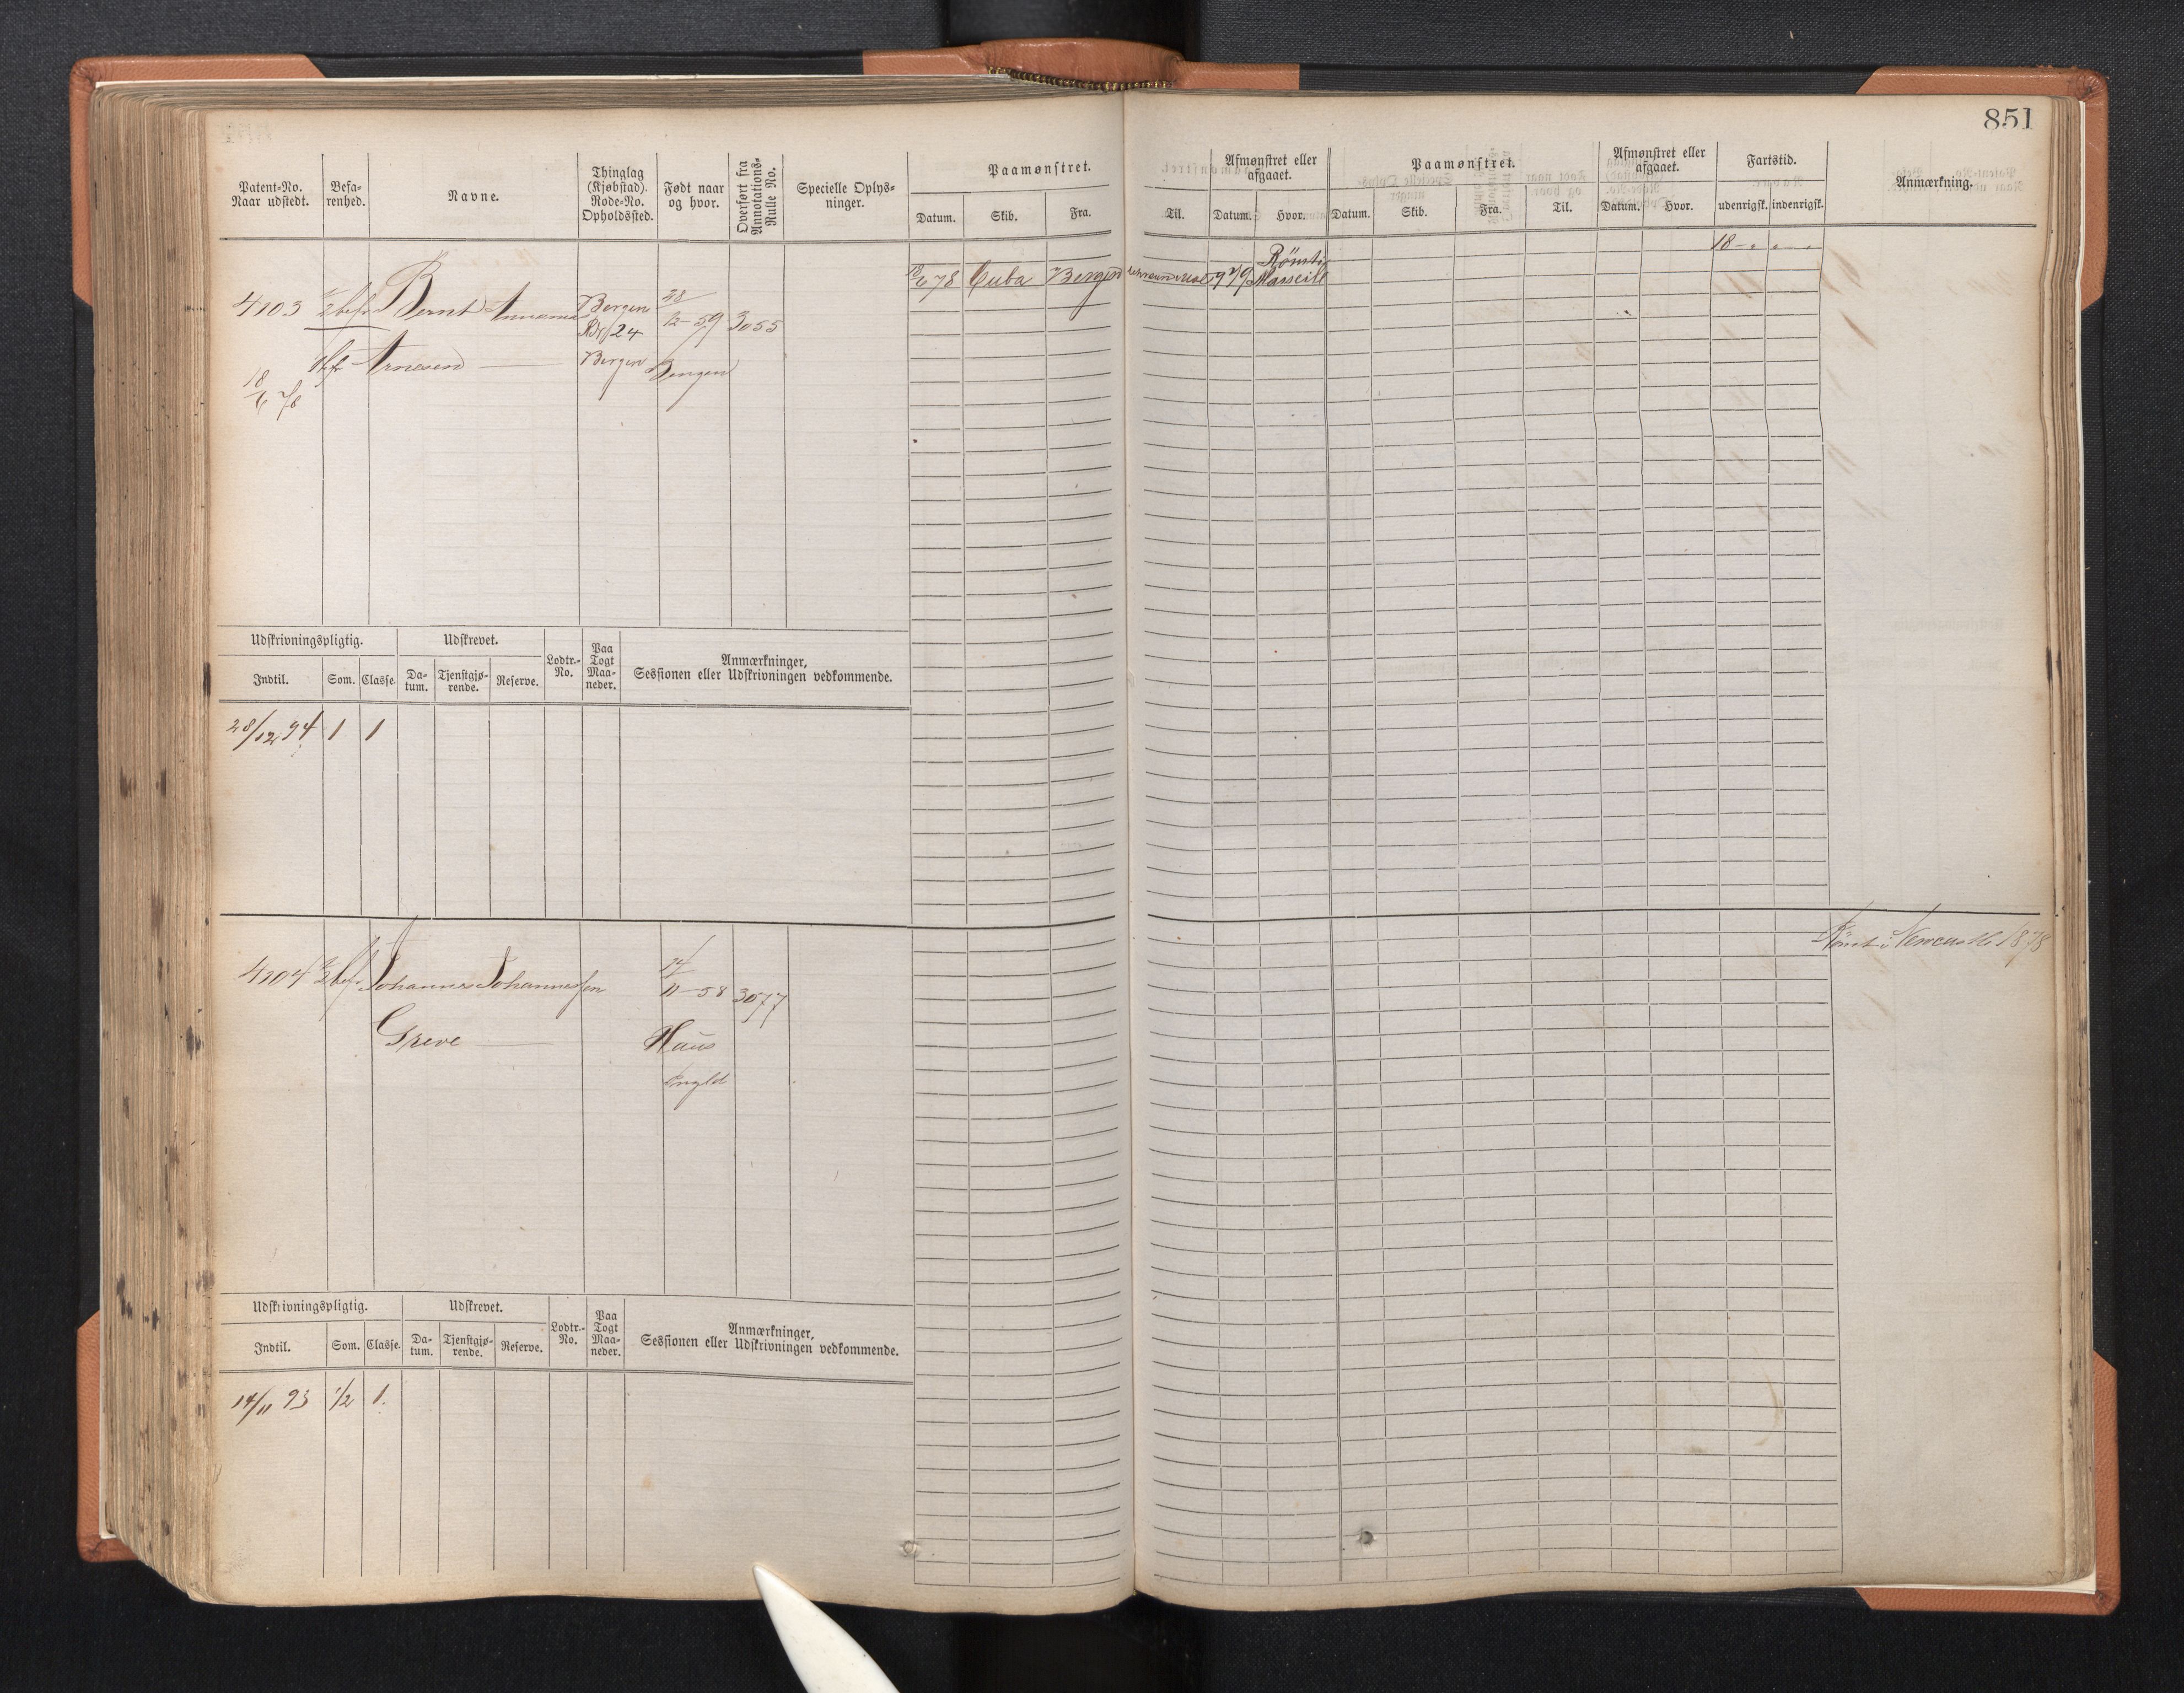 851
Patent-No.
Naar udstedt.
Befa-
renhed.
Navne.
Thinglag
(Kjøbstad).
Rode-No.
Opholdssted.
Født naar
og hvor.
Overført fra
Annotations-
Rulle No.
Specielle Oplys-
ninger.
Paamønstret.
Datum.
Skib.
Fra.
Til.
Afmønstret eller
afgaaet.
Datum.
Hvor.
Paamønstret.
Datum.
Skib.
Fra.
Til.
Afmønstret eller
afgaaet.
Datum.
Hvor.
Fartstid.
udenrigsk.
indenrigsk.
Anmærkning.
4103
Bernt
Arnesen
18/6 78
Bergen
24
Bergen
28/12-59
Bergen
3055
18/6 78
Cuba
Bergen
Rømt i
Marseill
18
Udskrivningspligtig.
Udskrevet.
Lodtr.-
No.
Paa
Togt
Maa-
neder.
Anmærkninger,
Sessionen eller Udskrivningen vedkommende.
Indtil.
Som.
Classe.
Da-
tum.
Tjenstgjø-
rende.
Reserve.
28/12 94
1
1
4104
Johannes Johannessen
Greve
14/11-58
Haus
3077
Rømt i Newcastle 1878
Udskrivningspligtig.
Udskrevet.
Lodtr.-
No.
Paa
Togt
Maa-
neder.
Anmærkninger,
Sessionen eller Udskrivningen vedkommende.
Indtil.
Som.
Classe.
Da-
tum.
Tjenstgjø-
rende.
Reserve.
14/11 93
1/2
1.